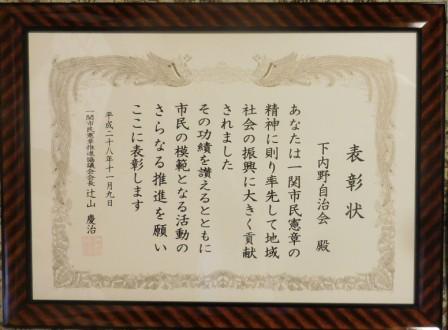 表彰状
下内野自治会 殿
あなたは一関市民憲章の
精神に則り率先して地域
社会の振興に大きく貢献
されました
その功績を讃えるとともに
市民の模範となる活動の
さらなる推進を願い
ここに表彰します
平成二十八年十一月九日
一関市民憲章推進協議会会長 辻山 慶治